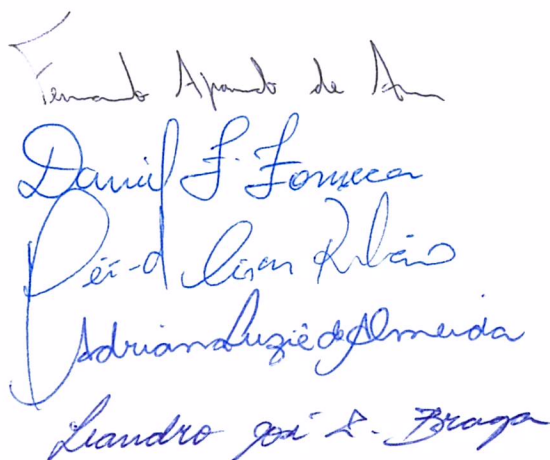 Fernando de
Daniel F. Fonseca
Ribeiro
Adriana Luziê de Almeida
Leandro José S. Braga